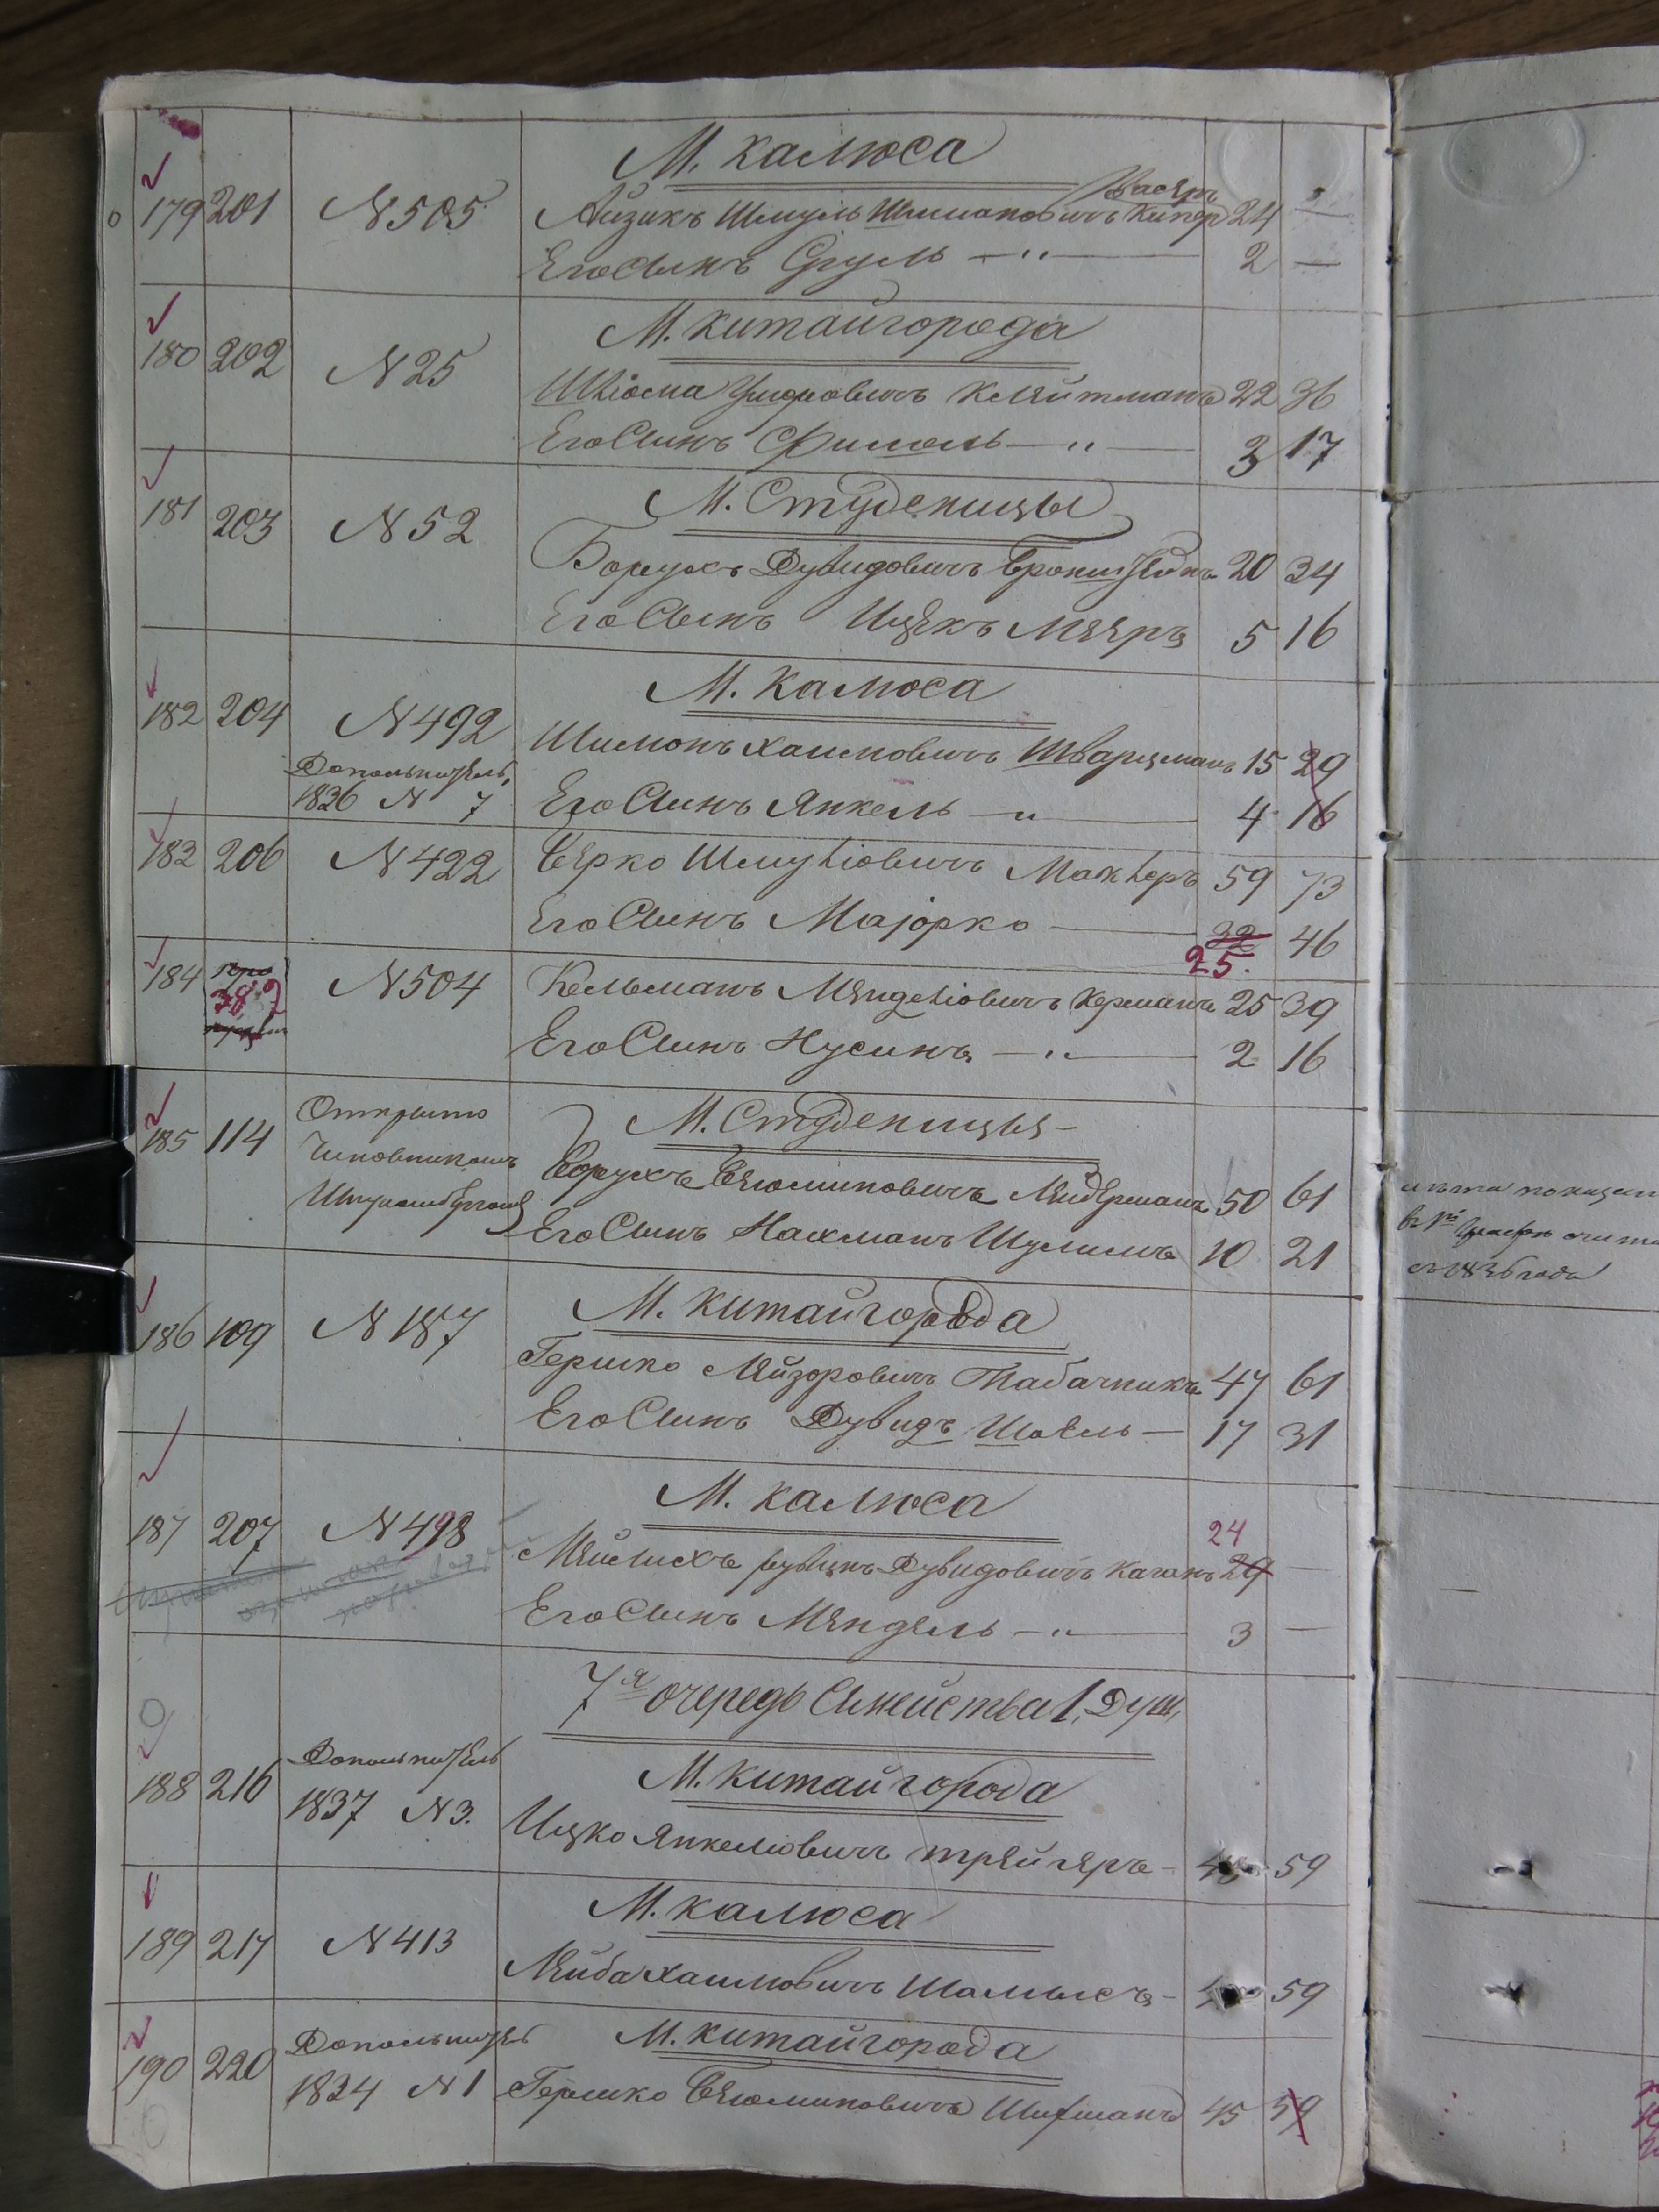 М. Калюса
179 201 N 505 Айзикъ Шмуль Шимановичъ Кипер 24 —
Его Сынъ Сруль — " — 2 —
М. Китайгорода
180 202 N 25 Шлiома Уморовичъ Клейтманъ 22 36
Его Сынъ Фишель — " — 3 17
М. Студеницы
181 203 N 52 Борухъ Дувидовичъ 20 34
Его Сынъ Ицекъ Мееръ 5 16
М. Калюса
182 204 N 492 Шимонъ Хаимовичъ Шварцманъ 15 29
Дополнитель,
1836 N 7 Его Сынъ Янкель — " — 4 16
183 206 N 422 Берко Шмулiовичъ Маклеръ 59 73
Его Сынъ Маjорко — 32 46
25.
184 382 N 504 Кельманъ Менделiовичъ Керманъ 25 39
Его Сынъ Нусинъ — " — 2 16
М. Студеницы
185 114 Открыто
Чиновникомъ Борухъ Бенюминовичъ Лидерманъ 50 61
Его Сынъ Нахманъ Шулимъ 10 21
лета показан
съ 1836 года
М. Китайгорода
186 109 N 187 Гершко Лейзоровичъ Табачникъ 47 61
Его Сынъ Дувидъ Шоель — 17 31
М. Калюса
187 207 N 498 24
Мейлихъ Дувидовичъ Каганъ 29 —
Его Сынъ Мендель — " — 3 —
7я очередь Семейства 1. Душ,
М. Китайгорода
188 216 Дополнитель
1837 N 3. Ицко Янкелiовичъ Трейгеръ — 59
М. Калюса
189 217 N 413 Лейба Хаимовичъ Шамысъ — 59
М. Китайгорода
190 220 Дополнитель
1834 N 1 Гершко Бенюминовичъ Шифманъ 45 59